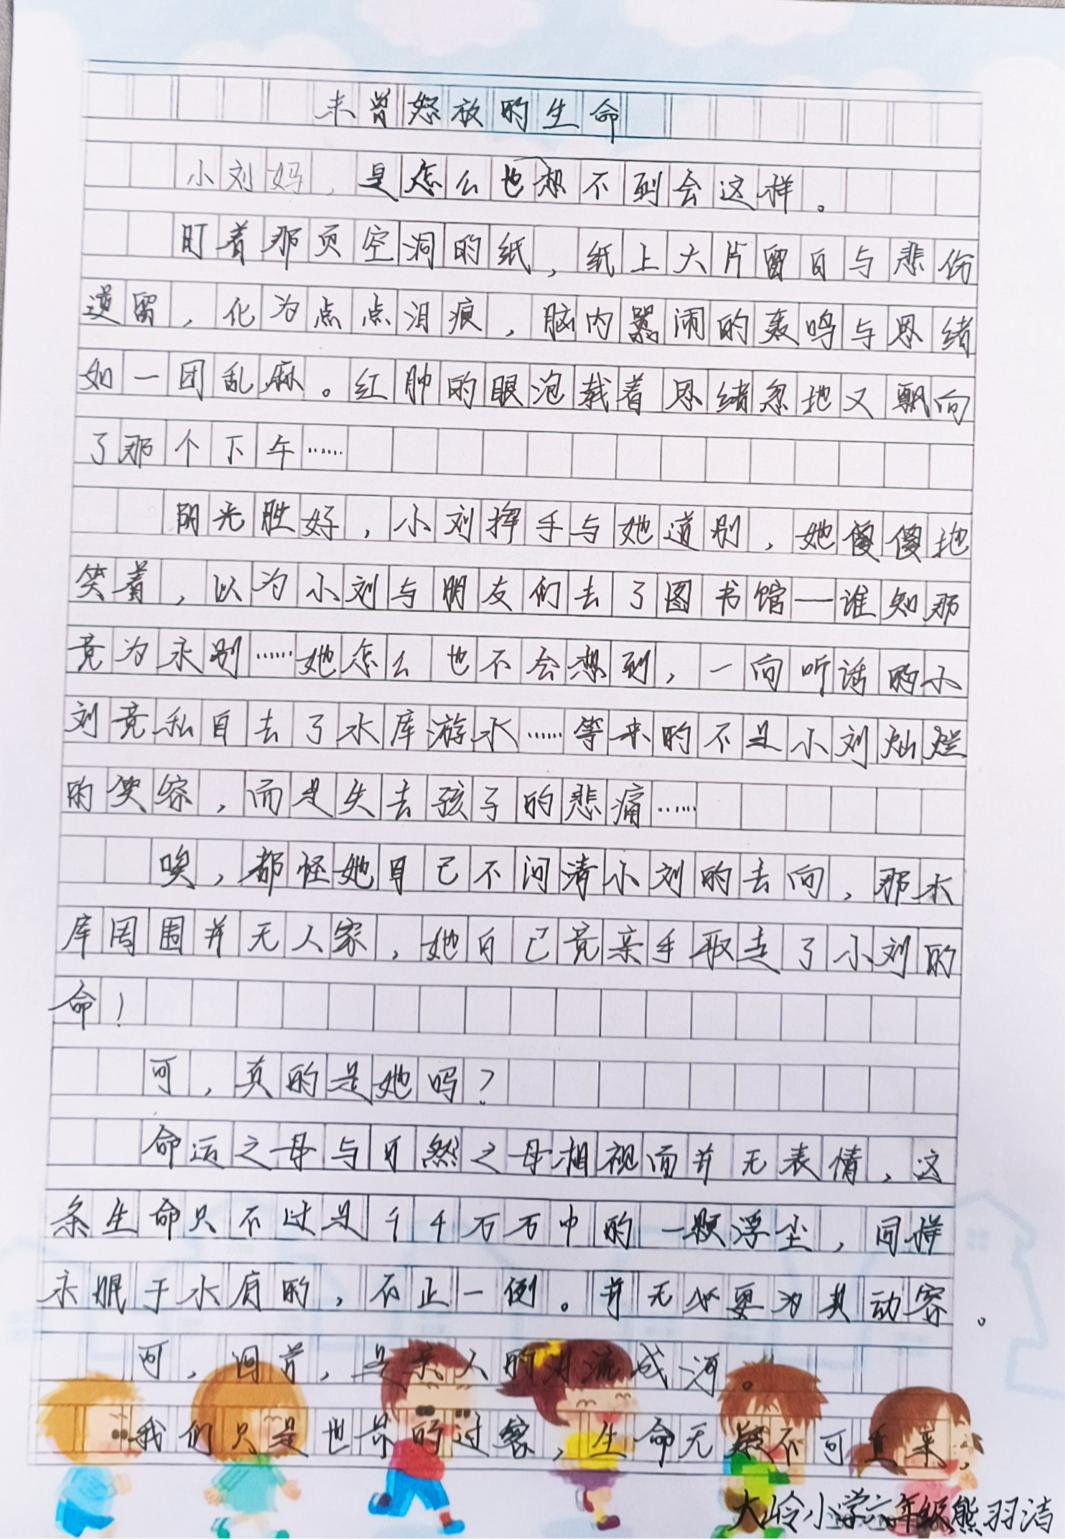 未曾怒放的生命
小刘妈，是怎么也想不到会这样。
盯着那页空洞的纸，纸上大片留白与悲伤
遗留，化为点点泪痕，脑内嚣闹的轰鸣与思绪
如一团乱麻。红肿的眼泡载着思绪忽地又飘向
了那个下午……
阳光胜好，小刘挥手与她道别，她傻傻地
笑着，以为小刘与朋友们去了图书馆—谁知那
竟为永别……她怎么也不会想到，一向听话的小
刘竟私自去了水库游水……等来的不是小刘灿烂
的笑容，而是失去孩子的悲痛……
唉，都怪她自己不问清小刘的去向，那水
库周围并无人家，她自己竟亲手取走了小刘的
命！
可，真的是她吗？
命运之母与自然之母相视而并无表情，这
条生命只不过是千千万万中的一颗浮尘，同样
永眠于水底的，不止一例。并无必要为其动容。
可，回首，是亲人的 流成河。
我们只是世界的过客，生命无 不可重来，
大岭小学六年级熊羽洁